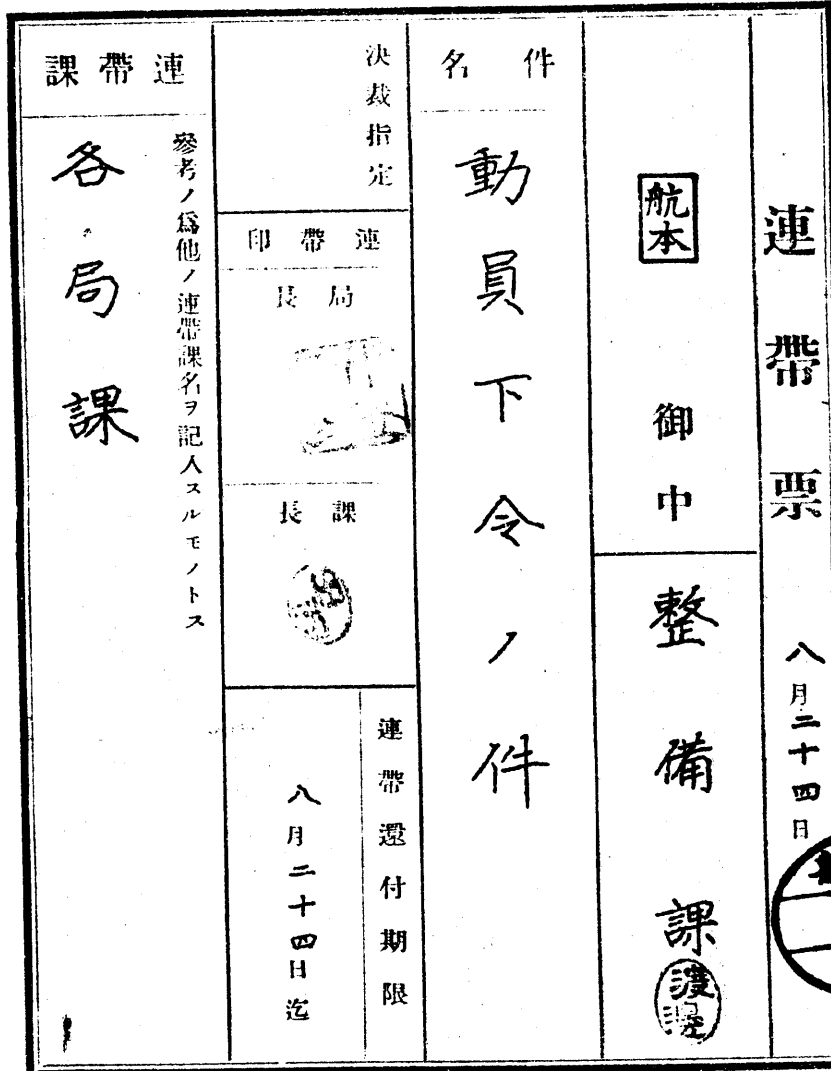 連帶票
八月二十四日
航本 御中
整備課
渡邊
件名
動員下令ノ件
決裁指定
連帶印
局長
課長
連帶還付期限
八月二十四日迄
連帶課
參考ノ爲他ノ連帶課名ヲ記入スルモノトス
各局課